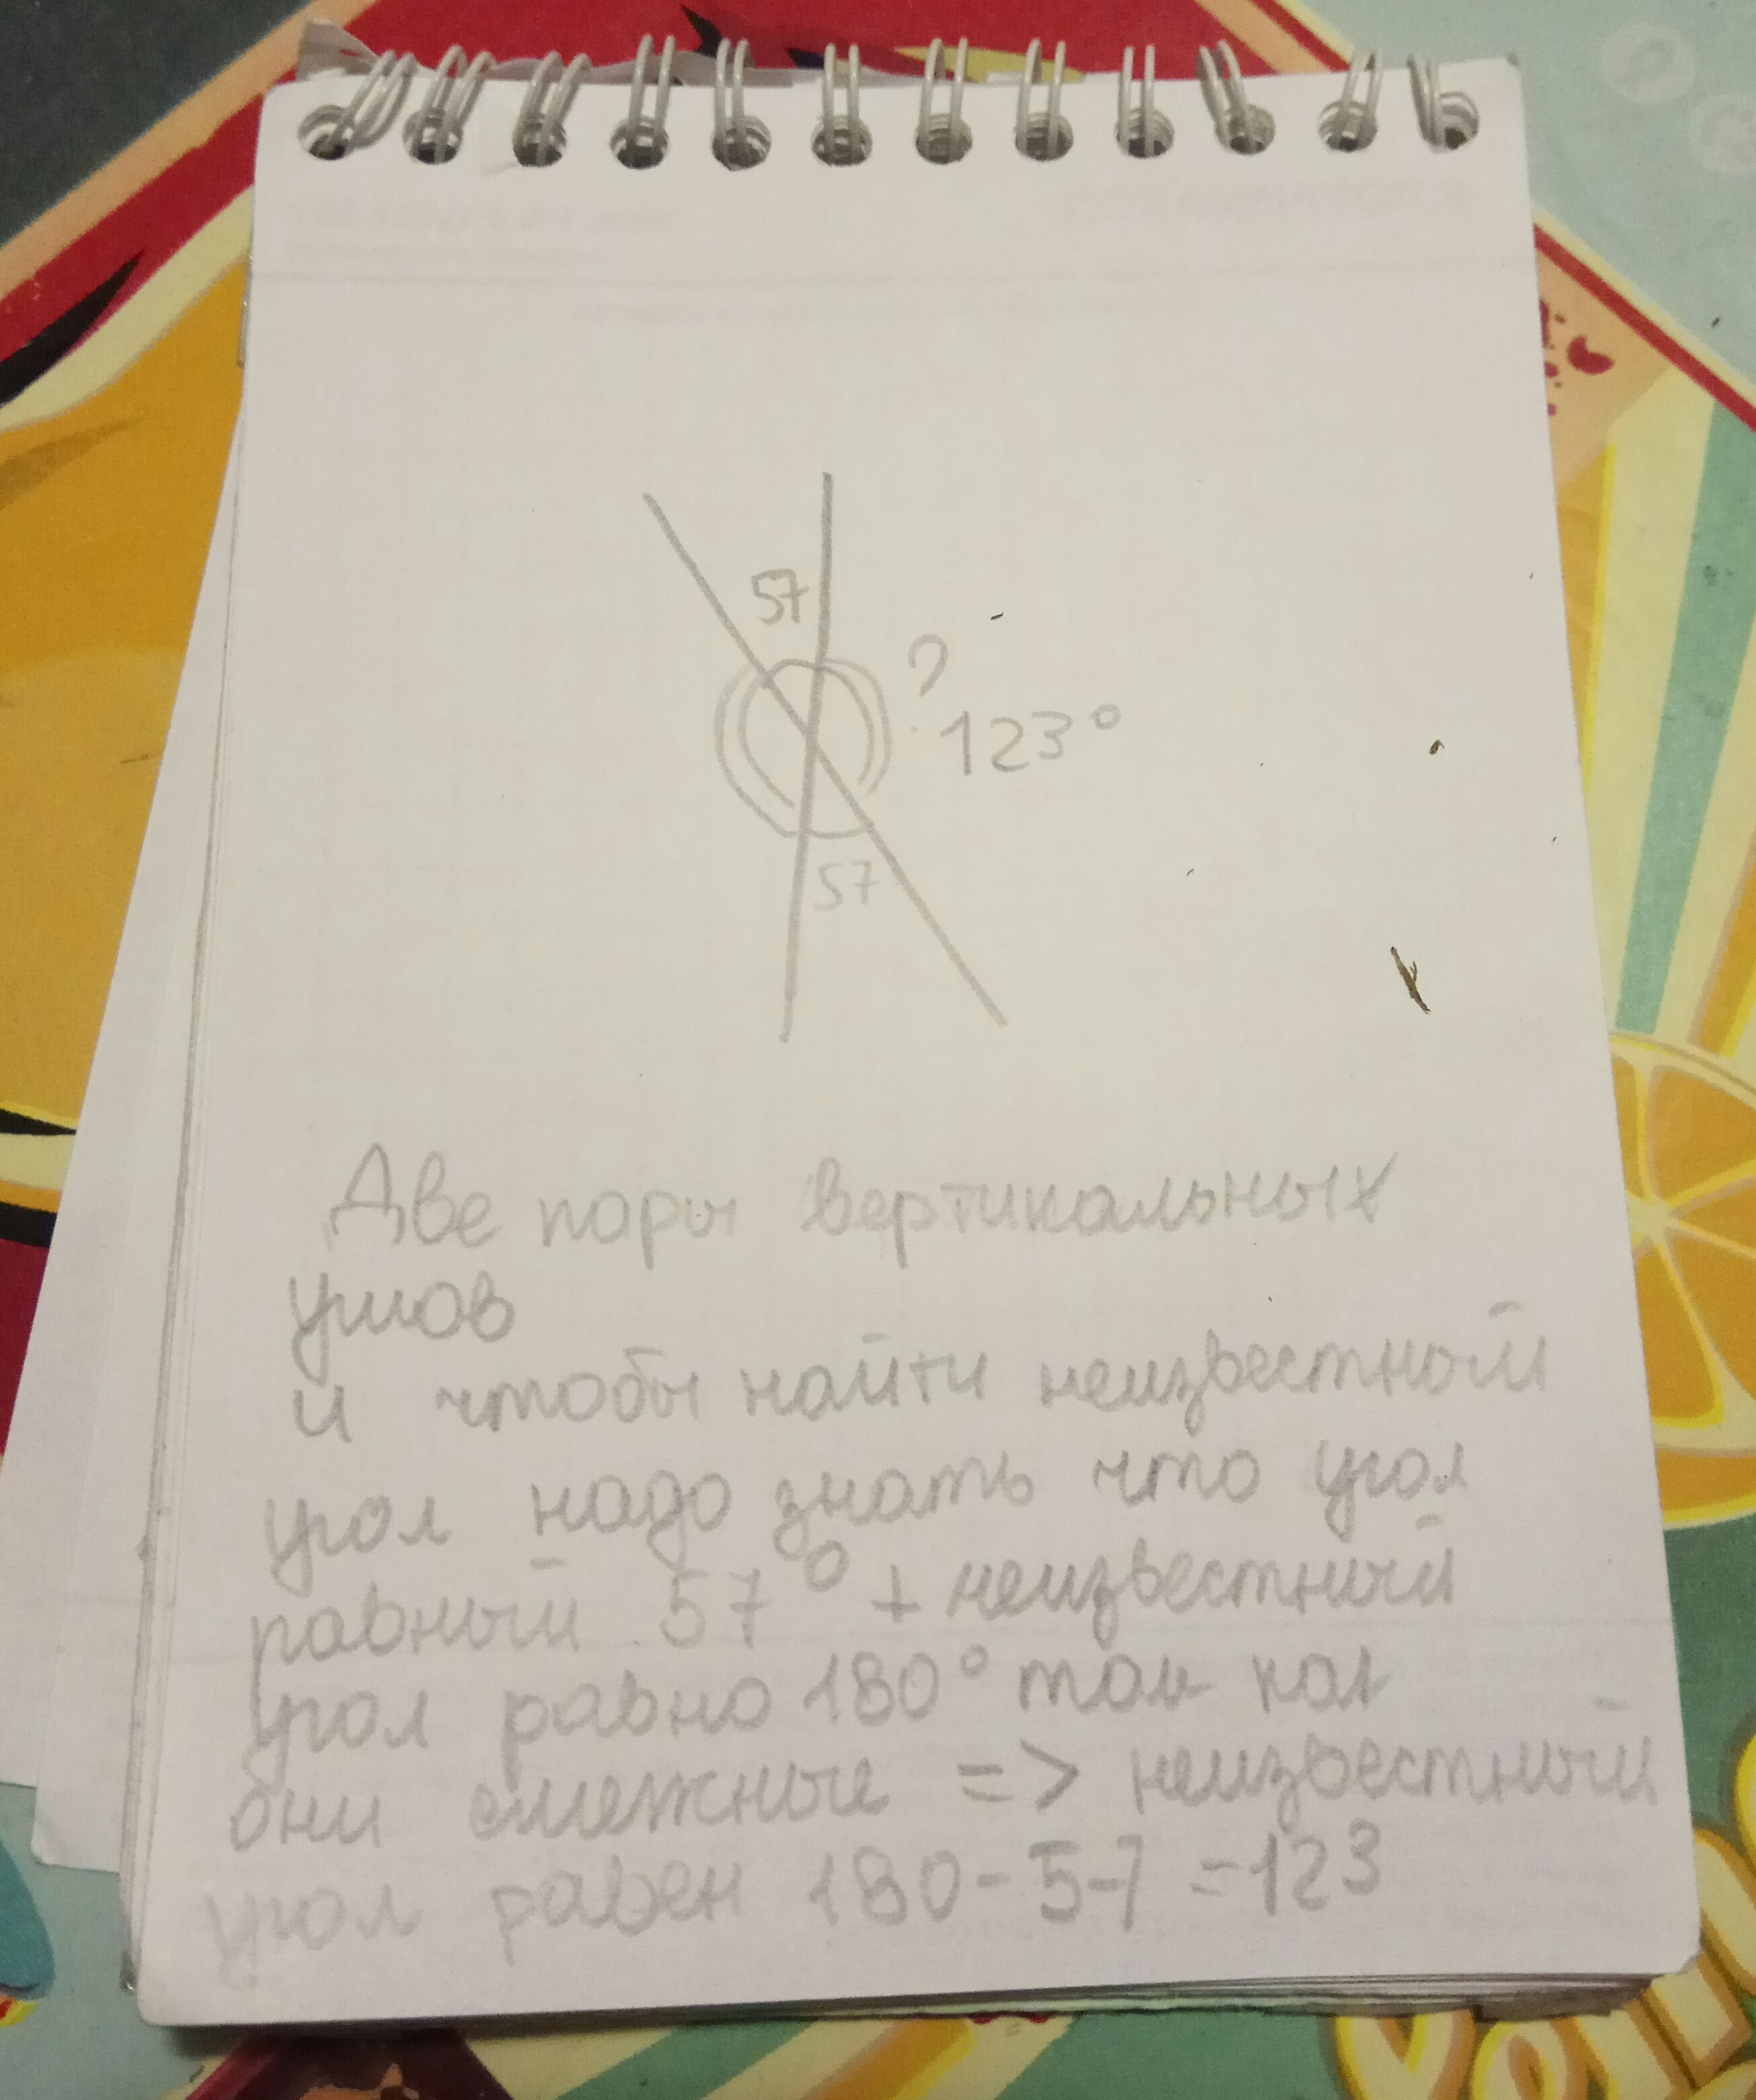 57
?
123°
57
Две пары вертикальных
углов
и чтобы найти неизвестный
угол надо знать что угол
равный 57° + неизвестный
угол равно 180° так как
они смежные => неизвестный
угол равен 180-57=123